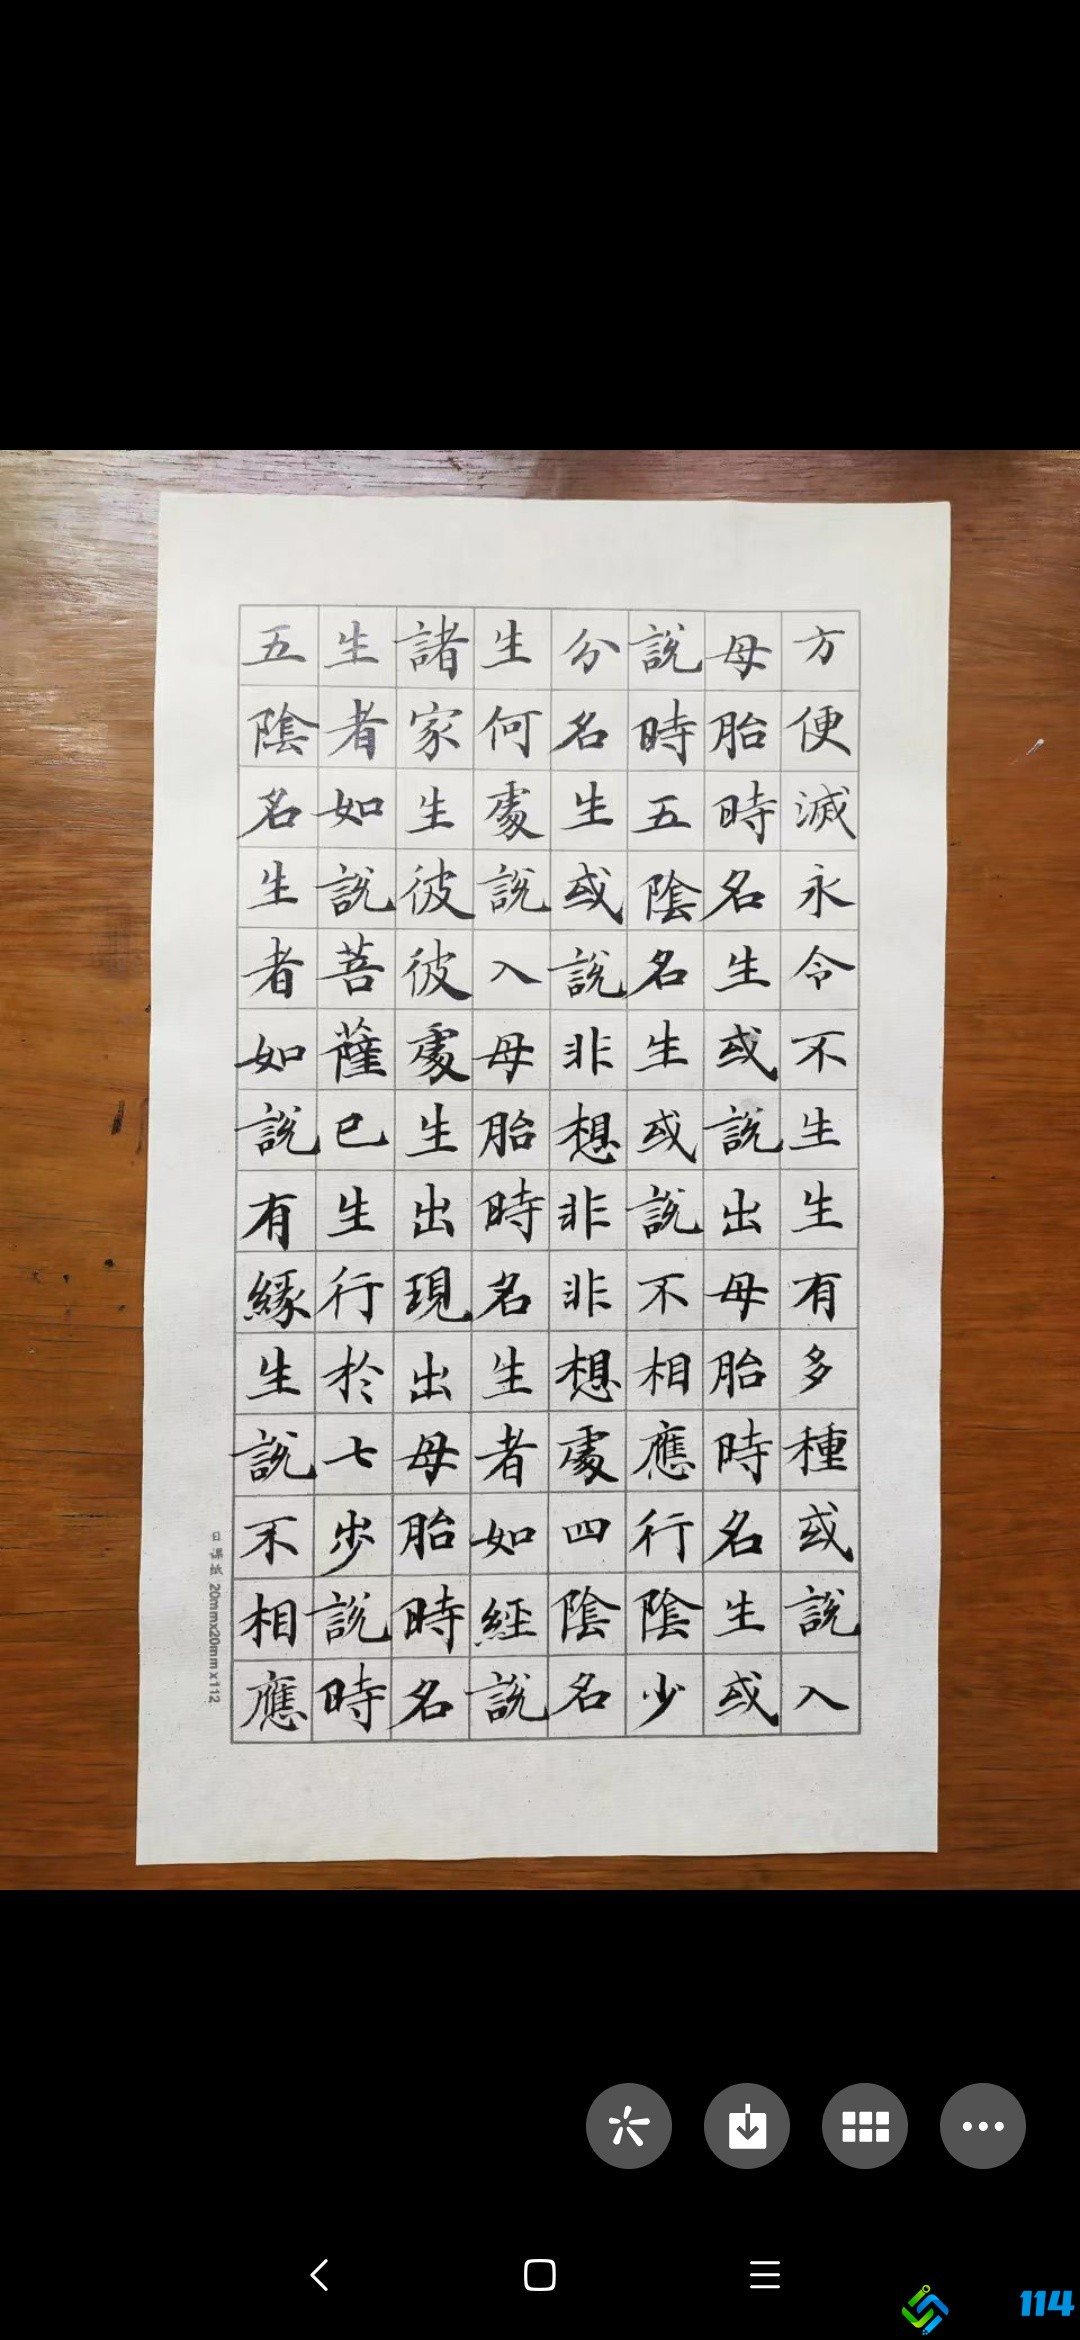 方便滅永令不生生有多種或說入
母胎時名生或說出母胎時名生或
說時五陰名生或說不相應行陰少
分名生或說非想非非想處四陰名
生何處說入母胎時名生者如經說
諸家生彼彼處生出現出母胎時名
生者如說菩薩已生行於七步說時
五陰名生者如說有緣生說不相應
日課紙 20mmx20mmx112
114